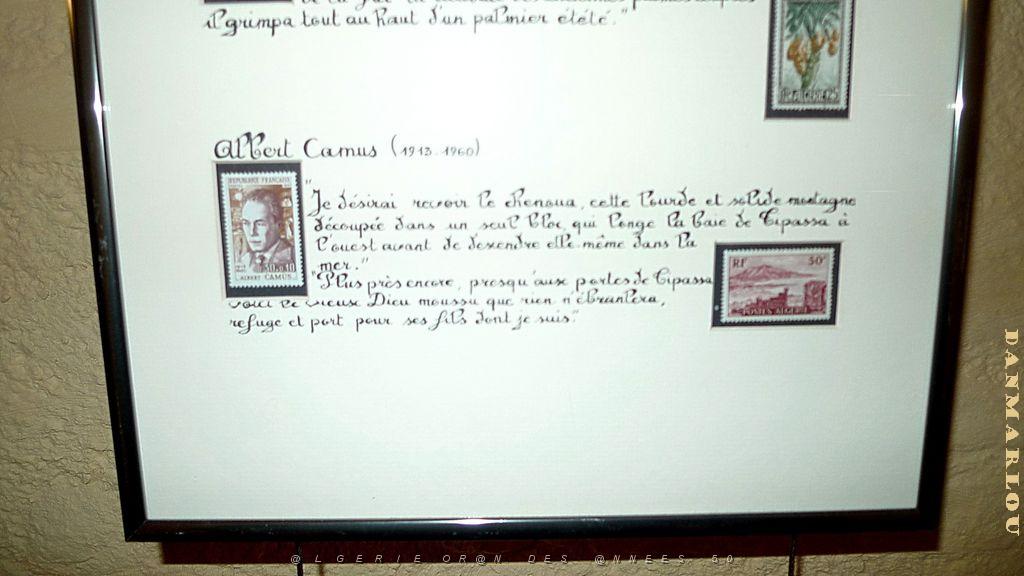 grimpa tout au haut d'un palmier étêté."
Albert Camus (1913.1960)
REPUBLIQUE FRANÇAISE
ALBERT CAMUS
"Je désirai revoir le chenoua, cette lourde et solide montagne
découpée dans un seul bloc, qui longe la baie de Tipassa à
l'ouest avant de descendre elle même dans la
mer."
"Plus près encore, presqu'aux portes de Tipassa
voici le vieux Dieu moussu que rien n'ébranlera,
refuge et port pour ses fils dont je suis."
RF 50c
POSTES ALGERIE
DANMARLOU
@LGERIE OR@N DES @NNEES 50